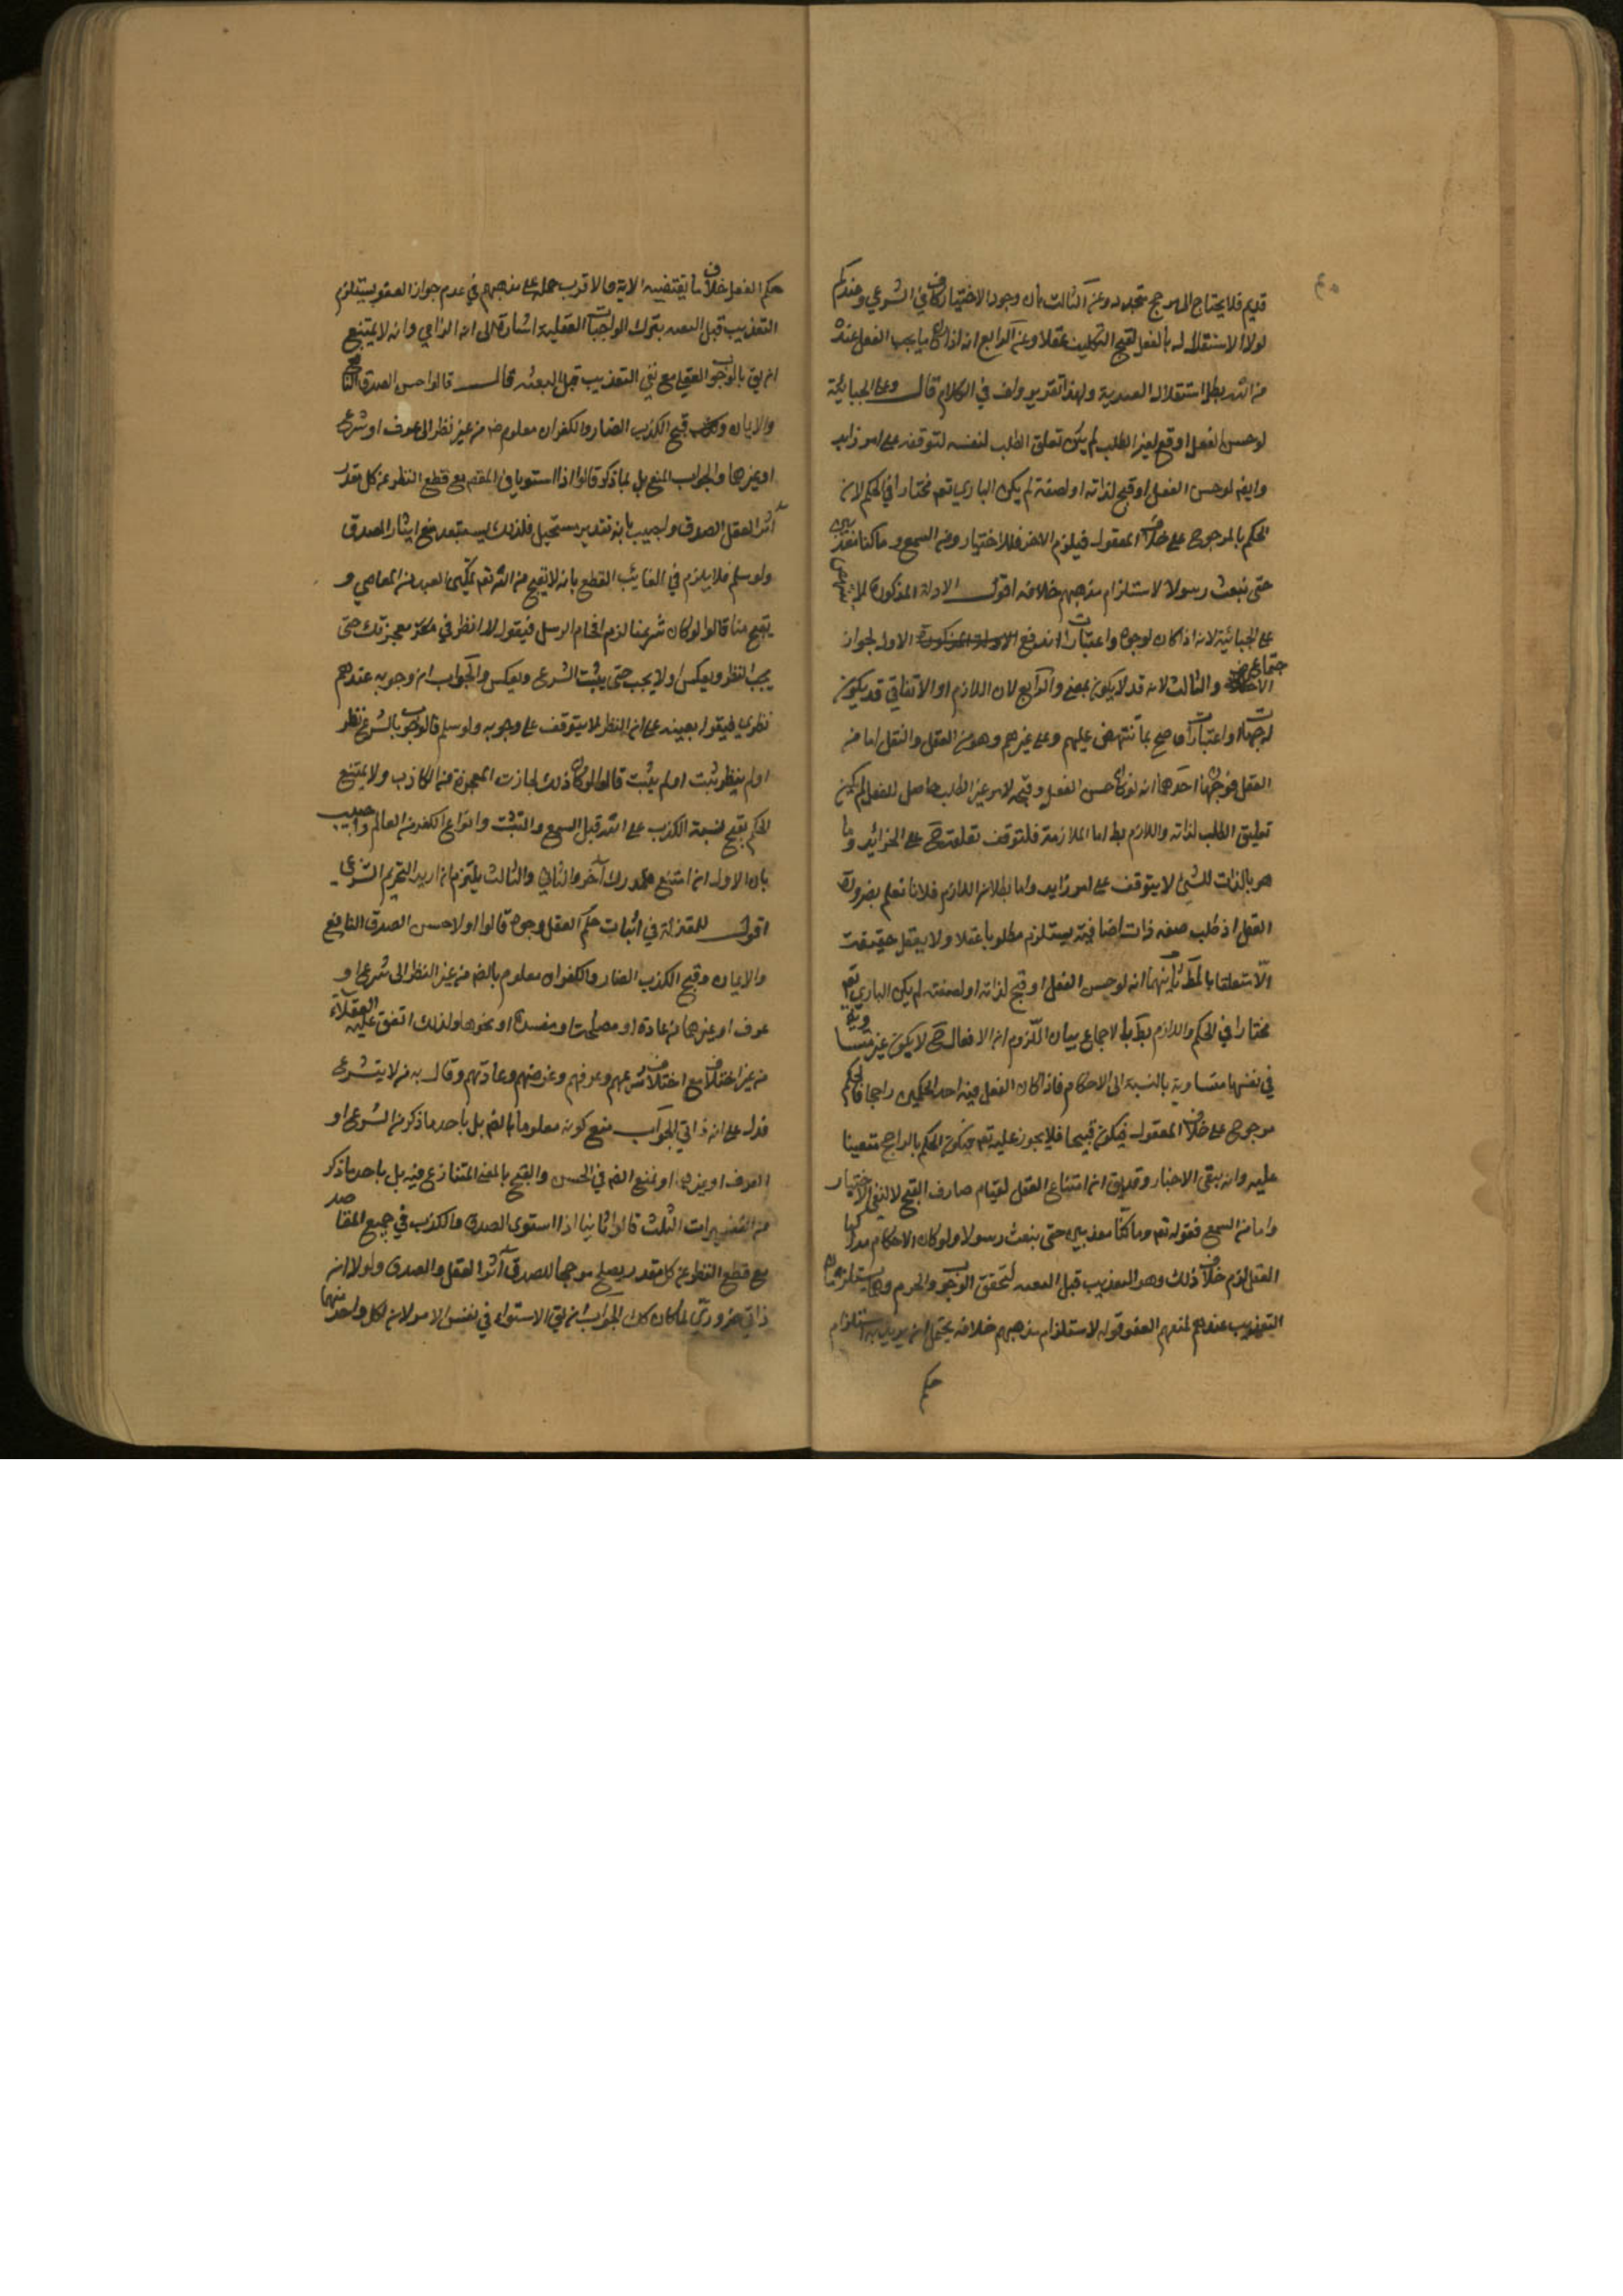 قديم فلا يحتاج الى مرجح متجدد وعن الثالث بان وجود الاختيار كاف في الشرعي وعندكم
لولا الاستقلال به بالفعل لقبح التكليف عقلا وعن الرابع انه اذا كان ما يجب الفعل عنده
من الله بطل استقلال العبد به ولهذا تقرير ولف في الكلام قال وعلى الجبائية
لو حسن الفعل او قبح لغير الطلب لم يكن تعلق الطلب لنفسه لتوقفه على امر زايد
وايضا لو حسن الفعل او قبح لذاته او لصفة لم يكن الباري تعم مختارا في الحكم لان
الحكم بالمرجوح على خلاف المعقول فيلزم الاخر فلا اختيار ومن السمع وما كنا معذبين
حتى نبعث رسولا لاستلزام مذهبهم خلافه اقول الادلة المذكورة لا تنتهض
على الجبائية لانه اذا كان لوجوه واعتبارات اندفع الاول لجواز
الاجتماع والثالث لانه قد لا يكون بمعنى والرابع لان اللازم او الاتفاقي قد يكون
لجهات واعتبارات صح بما تنتهض عليهم وعلى غيرهم وهو من العقل والنقل اما من
العقل فوجهان احدهما انه لو كان حسن الفعل وقبحه لامر غير الطلب حاصل للفعل لم يكن
تعليق الطلب لذاته واللازم بط اما الملازمة فلتوقف تعلقه ح على الزائد وما
هو بالذات للشئ لا يتوقف على امر زايد واما بطلان اللازم فلانا نعلم بضرورة
العقل اذ طلب صفة ذات اضافية يستلزم مطلوبا عقلا ولا يعقل حقيقته
الا متعلقا بالمط ثانيهما انه لو حسن الفعل او قبح لذاته او لصفته لم يكن الباري تعم
مختارا في الحكم واللازم بط بالاجماع بيان اللزوم ان الافعال ح لا يكون غير متساوية
في نفسها متساوية بالنسبة الى الاحكام فاذا كان الفعل فيه احد الحكمين راجحا فالحكم
مرجوح على خلاف المعقول فيكون قبيحا فلا يجوز عليه تعم فيكون الحكم بالراجح متعينا
عليه وانه ينفي الاختيار وقد يق ان امتناع الفعل لقيام صارف القبح لا لنفي الاختيار
واما من السمع فقوله تعم وما كنا معذبين حتى نبعث رسولا ولو كان الاحكام مدركها
العقل لزم خلاف ذلك وهو التعذيب قبل البعثه لتحقق الوجوب والحرمة وهما يستلزمان
التعذيب عندهم لمنعهم العفو قوله لاستلزام مذهبهم خلافه يحتمل ان يريد به استلزام
حكم
حكم الفعل خلاف ما يقتضيه الاية والاقرب حمله على مذهبهم في عدم جواز العفو يستلزم
التعذيب قبل البعثه بترك الواجبات العقلية اشارة الى انه الزامي وانه لا يمتنع
ان يق بالوجوب العقلي مع نفي التعذيب قبل البعثه قال قالوا حسن الصدق النافع
والايمان وقبح الكذب الضار والكفران معلوم ضر من غير نظر الى عرف او شرع
او غيرها والجواب المنع بل بما ذكر قالوا اذا استويا في المقصد مع قطع النظر عن كل مقدر
اثر العقل الصدق واجيب بانه تقدير مستحيل فلذلك يستبعد منع ايثار الصدق
ولو سلم فلا يلزم في الغائب القطع بانه لا يقبح من الله تعم تمكين العبد من المعاصي و
يقبح منا قالوا لو كان شرعيا لزم افحام الرسل فيقول لا انظر في معجزتك حتى
يجب النظر ويعكس او لا يجب حتى يثبت الشرع ويعكس والجواب ان وجوبه عندهم
نظري فيقول بعينه على ان النظر لا يتوقف على وجوبه ولو سلم فالوجوب بالشرع نظر
او لم ينظر ثبت او لم يثبت قالوا لو كان ذلك لجازت المعجزة من الكاذب ولا يمتنع
الحكم بقبح نسبة الكذب على الله قبل السمع والتثليث وانواع الكفر من العالم واجيب
بان الاول ان امتنع فلمدرك آخر والثاني والثالث يلتزم ان اريد التحريم الشرعي
اقول للمعتزلة في اثبات حكم العقل وجوه قالوا اولا حسن الصدق النافع
والايمان وقبح الكذب الضار والكفران معلوم بالضر من غير النظر الى شرع او
عرف او غيرهما من عادة او مصلحة او مفسدة او نحوها ولذلك اتفق عليه العقلاء
من غير اختلاف مع اختلاف شرعهم وعرفهم وغرضهم وعادتهم وقال به من لا يتشرع
فدل على انه ذاتي الجواب منع كونه معلوما بالضر بل باحد ما ذكر من الشرع او
العرف او غيرها او نمنع الضر في الحسن والقبح بالمعنى المتنازع فيه بل باحد ما ذكر
من التفسيرات الثلث قالوا ثانيا اذا استوى الصدق والكذب في جميع المقاصد
مع قطع النظر عن كل مقدر يصلح مرجحا للصدق آثر العقل والصدق ولولا انه
ذاتي ضروري لما كان كك الجواب انه يق الاستواء في نفس الامر لان لكل واحد منهما